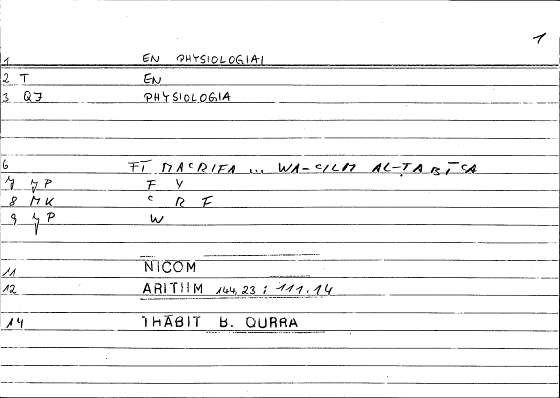 1
1 EN PHYSIOLOGIAI
2 T EN
3 Q7 PHYSIOLOGIA
6 FĪ MACRIFA ... WA-CILM AL-ṬABĪCA
7 YP F Y
8 MK C R F
9 YP W
11 NICOM
12 ARITHM 144,23 ; 111.14
14 THĀBIT B. QURRA